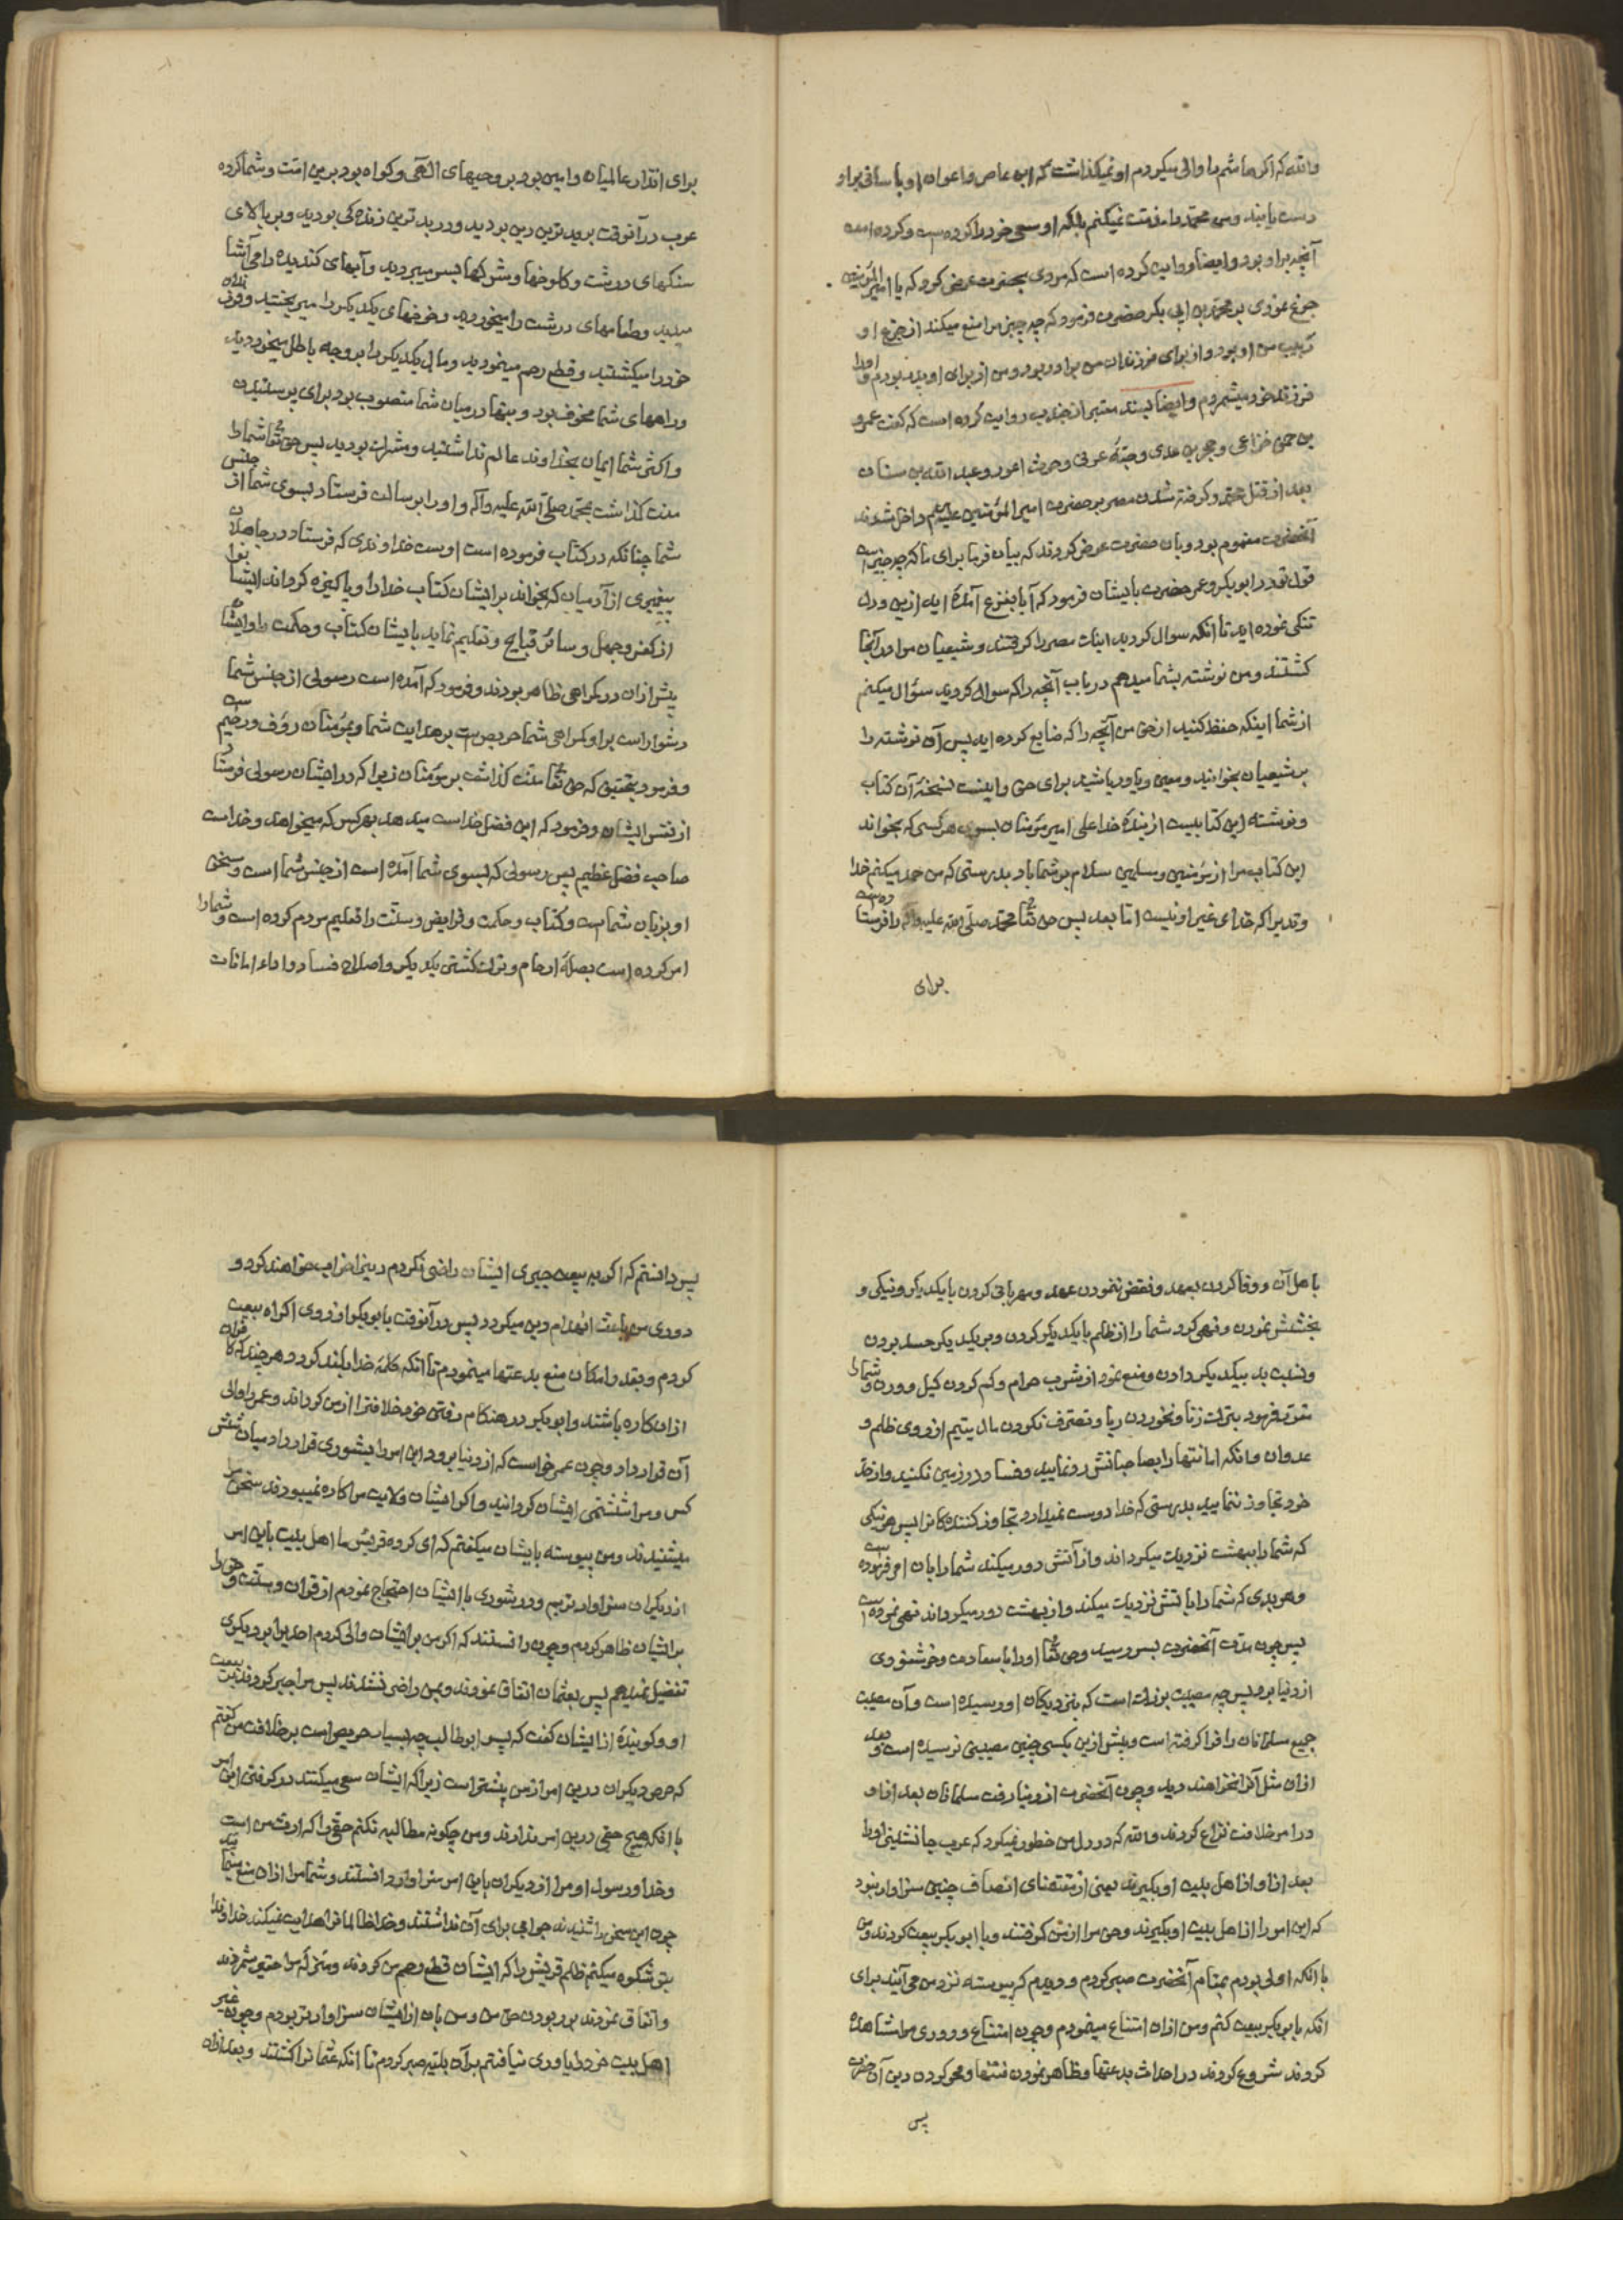 والله که اکر هاشم را والی میکردم او نمیکذاشت که ابن عاص و اعوان او با سانی براو
دست یابند و من محمد را مذمت نمیکنم بلکه او سعی خود را کرده است و کرده است
آنچه براو بود و ایضا روایت کرده است که مردی بحضرت عرض کرد که یا امیر المؤمنین
جزع نمودی بر محمد بن ابی بکر حضرت فرمود که چه چیز مرا منع میکند از جزع او
ربیب من او بود و از برای فرزندان من برادر بود و من از برای او پدر بودم و او را
فرزند خود میشمردم و ایضا بسند معتبر از جندب روایت کرده است که کفت عمرو
بن حمق خزاعی و حجر بن عدی و حبّهٔ عرنی و حرث اعور و عبد الله بن سنان
بعد از قتل محمد و کرفته شدن مصر بر حضرت امیر المؤمنین علیه السلم داخل شدند
آنحضرت مغموم بود و بان حضرت عرض کردند که بیان فرما برای ما که چه چیز است
قول تو در ابو بکر و عمر حضرت بایشان فرمود که آیا بفزع آمدهٔ اید ازین و دل
تنکی نموده اید تا انکه سوال کردید اینک مصر را کرفتند و شیعیان مرا در آنجا
کشتند و من نوشته بشما میدهم در باب آنچه را که سوال کردید سؤال میکنم
از شما اینکه حفظ کنید از حق من آنچه را که ضایع کرده اید پس آن نوشته را
بر شیعیان بخوانید و معین و یاور باشید برای حق و اینست نسخهٔ آن کتاب
و نوشته این کتابیست از بندهٔ خدا علی امیر مؤمنان بسوی هر کسی که بخواند
این کتاب مرا از مؤمنین و مسلمین سلام بر شما باد بدرستی که من حمد میکنم خدا
وندیرا که خدای غیر او نیست اما بعد پس حق تعا محمد صلی الله علیه واله را فرستاده است
برای
برای انذار عالمیان و امین بود بر وحیهای الهی و کواه بود برین امت و شما کرده
عرب در آنوقت بر بدترین دین بودید و در بدترین زنده کی بودید و بر بالای
سنکهای درشت و کلوخها و شرکها بسر میبردید و آبهای کندیده را می آشا
میدید و طعامهای درشت را میخوردید و خونهای یکدیکر را میریختید و فرزندان
خود را میکشتید و قطع رحم مینمودید و مال یکدیکر را بر وجه باطل میخوردید
و راههای شما مخوف بود و بتها در میان شما منصوب بود برای پرستیدن
و اکثر شما ایمان بخداوند عالم نداشتید و مشرک بودید پس حق تعا شما را
منت کذاشت بمحمد صلی الله علیه واله و او را برسالت فرستاد بسوی شما از جنس
شما چنانکه در کتاب فرموده است اوست خداوندی که فرستاد در جاهلان
پیغمبری از آدمیان که بخواند بر ایشان کتاب خدا را و پاکیزه کرداند ایشانرا
از کفر و جهل و سائر قبایح و تعلیم نماید بایشان کتاب و حکمت را و ایشان
پیش از ان در کمراهی ظاهر بودند و فرمود که آمده است رسولی از جنس شما
دشوار است براو کمراهی شما حریص است بر هدایت شما و بمؤمنان رؤف و رحیم است
و فرمود بتحقیق که حق تعا منت کذاشت بر مؤمنان زیرا که در ایشان رسولی فرستاد
از نفس ایشان و فرمود که این فضل خداست میدهد بهر کس که میخواهد و خداست
صاحب فضل عظیم پس رسولی که بسوی شما آمده است از جنس شما است و سخن
او بزبان شماست و کتاب و حکمت و فرایض و سنّت را تعلیم مردم کرده است و شما را
امر کرده است بصلهٔ ارحام و ترک کشتن یکدیکر و اصلاح فساد و اداء امانات
باهل آن و وفا کردن بعهد و نقض ننمودن عهد و مهربانی کردن با یکدیکر و نیکی و
بخشش نمودن و نهی کرد شما را از ظلم با یکدیکر کردن و بر یکدیکر حسد بردن
و نسبت بد بیکدیکر دادن و منع نمود از شرب حرام و کم کردن کیل و وزن و شما را
فرمود بترک زنا و نخوردن ربا و تصرف نکردن مال یتیم از روی ظلم و
عدوان و انکه امانتها را بصاحبانش رد نمایید و فساد در زمین نکنید و از حد
خود تجاوز ننمایید بدرستی که خدا دوست نمیدارد تجاوز کننده کانرا پس هر نیکی
که شما را ببهشت نزدیک میکرداند و از آتش دور میکند شما را بان امر فرموده است
و هر بدی که شما را باتش نزدیک میکند و از بهشت دور میکرداند نهی نموده است
پس چون مدت آنحضرت بسر رسید و حق تعا او را با سعادت و خوشنودی
از دنیا برد پس چه مصیبت بزرک است که بنزدیکان او رسیده است و آن مصیبت
جمیع مسلمانان را فرا کرفته است و پیش ازین بکسی چنین مصیبتی نرسیده است و بعد
ازان مثل آنرا نخواهند دید و چون آنحضرت از دنیا رفت مسلمانان بعد از او
در امر خلافت نزاع کردند والله که در دل من خطور نمیکرد که عرب جانشینی او را
بعد از او از اهل بیت او بکیرند یعنی از مقتضای انصاف چنین سزاوار نبود
که این امر را از اهل بیت او بکیرند و حق مرا از من کرفتند و با ابو بکر بیعت کردند و من
با انکه اولی بودم بمقام آنحضرت صبر کردم و دیدم که پیوسته نزد من می آیند برای
انکه با ابو بکر بیعت کنم و من ازان امتناع مینمودم و چون امتناع و دوری مرا مشاهدهٔ
کردند شروع کردند در احداث بدعتها و ظاهر نمودن فتنها و محو کردن دین آن حضرت
پس
پس دانستم که اکر به بیعت جبری ایشان راضی نکردم دینرا خراب خواهند کرد و
دوری من باعث انهدام دین میکردد پس در آنوقت با ابو بکر از روی اکراه بیعت
کردم و بقدر امکان منع بدعتها مینمودم تا انکه کلمهٔ خدا بلند کردد هر چند کافران
ازان کاره باشند و ابو بکر در هنکام رفتن خود خلافترا از من کرداند و عمر را والی
آن قرار داد و چون عمر خواست که از دنیا برود این امر را بشوری قرار داد میان شش
کس و مرا ششمی ایشان کردانید و اکر ایشان ولایت مرا کاره نمیبودند سخن مرا
میشنیدند و من پیوسته بایشان میکفتم که ای کروه قریش ما اهل بیت باین امر
از دیکران سزاوارتریم و در شوری با ایشان احتجاج نمودم از قران و سنت و حق را
برایشان ظاهر کردم و چون دانستند که اکر من برایشان والی کردم احدیرا بر دیکری
تفضیل نمیدهم پس بعثمان اتفاق نمودند و بمن راضی نشدند پس مرا جبر کردند ببیعت
او و کویندهٔ از ایشان کفت که پسر ابو طالب چه بسیار حریص است بر خلافت من کفتم
که حرص دیکران درین امر از من بیشتر است زیرا که ایشان سعی میکنند در کرفتن این امر
با انکه هیچ حقی درین امر ندارند و من چکونه مطالبه نکنم حقی را که ارث من است
و خدا و رسول او مرا از دیکران باین امر سزاوار دانستند و شما مرا ازان منع مینمایید
چون این سخن را شنیدند جوابی برای آن نداشتند و خدا ظالمانرا هدایت نمیکند خداوندا
بتو شکوه میکنم ظلم قریش را که ایشان قطع رحم من کردند و منزلهٔ مرا حقیر شمردند
و اتفاق نمودند بر ربودن حق من و من بان از ایشان سزاوارتر بودم و چون غیر
اهل بیت خود را یاوری نیافتم بر آن بلیه صبر کردم تا انکه عثمانرا کشتند و بعد ازان